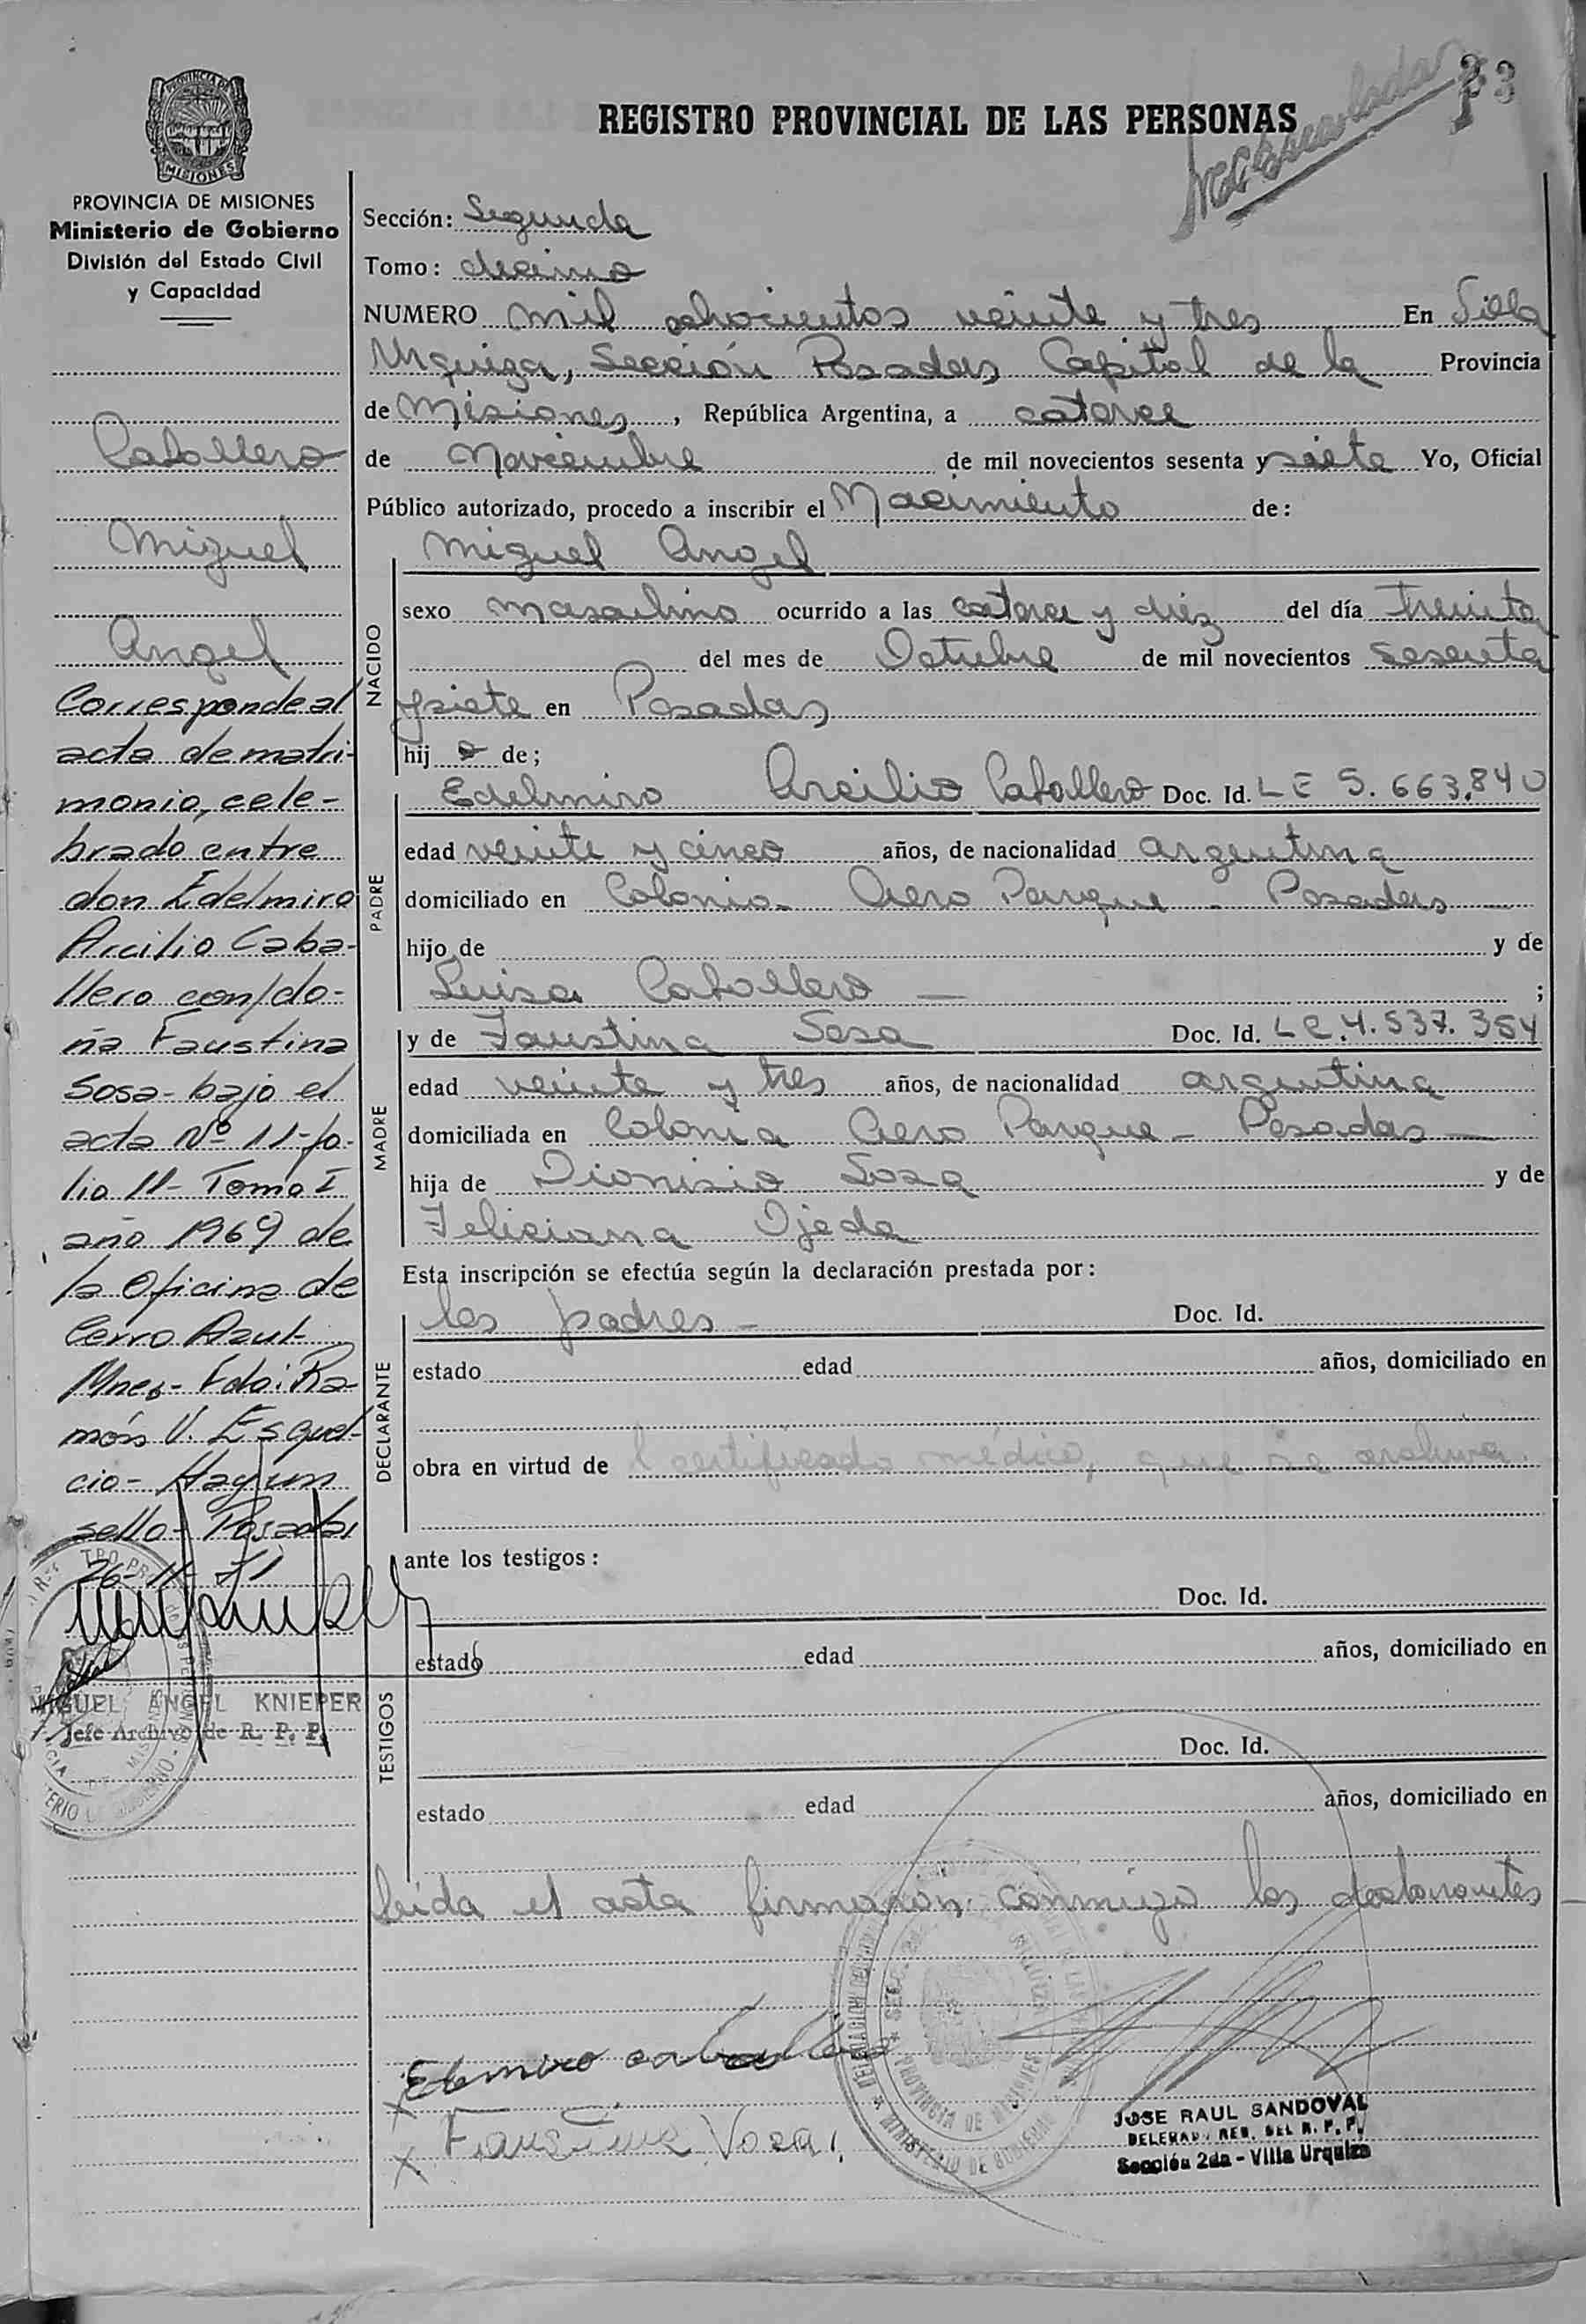 PROVINCIA DE
MISIONES
REGISTRO PROVINCIAL DE LAS PERSONAS
33
PROVINCIA DE MISIONES
Ministerio de Gobierno
División del Estado Civil
y Capacidad
Caballero
Miguel
Angel
Corresponde al
acta de matri-
monio, cele-
brado entre
don Edelmiro
Arcilio Caba-
llero con/do-
ña Faustina
Sosa- bajo el
acta Nº 11-fo-
lio 11- Tomo I
año 1969 de
la Oficina de
Cerro Azul-
Mnes- Fdo: Ra-
món V. Esquel-
cio- Hay un
sello- Posadas
26-11-71
MIGUEL ANGEL KNIEPER
Jefe Archivo de R. P. P.
Sección: Segunda
Tomo: decimo
NUMERO mil ochocientos veinte y tres En Villa
Urquiza, Sección Posadas Capital de la Provincia
de Misiones, República Argentina, a catorce
de Noviembre de mil novecientos sesenta y siete Yo, Oficial
Público autorizado, procedo a inscribir el Nacimiento de:
Miguel Angel
NACIDO
sexo masculino ocurrido a las catorce y diez del día treinta
del mes de Octubre de mil novecientos sesenta
y siete en Posadas
hij o de;
PADRE
Edelmiro Arcilio Caballero Doc. Id. LE 5.663.840
edad veinte y cinco años, de nacionalidad argentina
domiciliado en Colonia- Aero Parque - Posadas —
hijo de y de
Luisa Caballero — ;
MADRE
y de Faustina Sosa Doc. Id. LC. 4.537.354
edad veinte y tres años, de nacionalidad argentina
domiciliada en Colonia Aero Parque - Posadas —
hija de Dionisio Sosa y de
Feliciana Ojeda
Esta inscripción se efectúa según la declaración prestada por:
DECLARANTE
los padres - Doc. Id.
estado edad años, domiciliado en
obra en virtud de certificado médico, que se archiva.
ante los testigos:
TESTIGOS
Doc. Id.
estado edad años, domiciliado en
Doc. Id.
estado edad años, domiciliado en
leída el acta firmaron conmigo los declarantes —
PROVINCIA DE MISIONES
MINISTERIO DE GOBIERNO
x Edemiro caballero
x Faustina Sosa.
JOSE RAUL SANDOVAL
DELEGADO REG. DEL R. P. P.
Sección 2da - Villa Urquiza